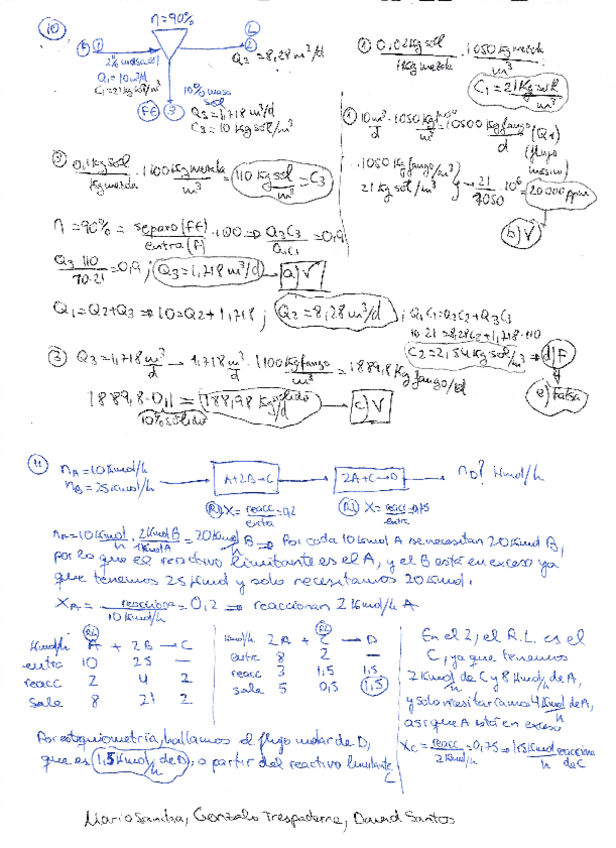 10
η=90%
2% masa sol
Q1=10m³/d
C1=21kg sol/m³
Q2=8,28 m³/d
10% masa sol
FE 3
Q3=1,718 m³/d
C3=10 kg sol/m³
① 0,02kg sol / 1kg mezcla · 1050 kg mezcla / m³
C1=21 kg sol / m³
① 10m³/d · 1050 kg fango/m³ = 10500 kg fango/d (Q1) (flujo masico)
1050 kg fango/m³
21 kg sol/m³ } → 21/1050 · 10⁶ = 20.000 ppm
b) V
③ 0,1 kg sol / kg mezcla · 1100 kg mezcla / m³ = 110 kg sol / m³ = C3
η=90% = separo (FE) / entra (F) · 100 ⇒ Q3C3 / Q1C1 = 0,9
Q3·110 / 10·21 = 0,9 ; Q3=1,718 m³/d → a) V
Q1=Q2+Q3 ⇒ 10=Q2+1,718 ; Q2=8,28 m³/d ; Q1C1=Q2C2+Q3C3
10·21=8,28C2+1,718·110
C2=2,54 kg sol/m³ → d) F
e) Falsa
③ Q3=1,718 m³/d → 1,718 m³/d · 1100 kg fango/m³ = 1889,8 kg fango/d
1889,8·0,1 = 188,98 kg sólido/d → c) V
10% sólido
11
nA=10 Kmol/h
nB=25 Kmol/h
A+2B→C
2A+C→D
nD? Kmol/h
(R.L) X = reacc/entra = 0,2
(R.L) X = reacc/entra = 0,75
nA=10 Kmol/h · 2 Kmol B / 1 Kmol A = 20 Kmol/h B ⇒ Por cada 10 Kmol A se necesitan 20 Kmol B,
por lo que el reactivo limitante es el A, y el B está en exceso ya
que tenemos 25 Kmol y solo necesitamos 20 Kmol.
XA = reacciona / 10 Kmol/h = 0,2 ⇒ reaccionan 2 Kmol/h A
(R.L)
Kmol/h A + 2B → C
entra 10 25 —
reacc 2 4 2
sale 8 21 2
(R.L)
Kmol/h 2A + C → D
entra 8 2 —
reacc 3 1,5 1,5
sale 5 0,5 1,5
En el 2, el R.L. es el
C, ya que tenemos
2 Kmol/h de C y 8 Kmol/h de A,
y solo necesitaríamos 4 Kmol/h de A,
asi que A está en exceso
XC = reacc / 2 Kmol/h = 0,75 ⇒ 1,5 Kmol/h reacciona de C
Por estequiometría, hallamos el flujo molar de D,
que es 1,5 Kmol/h de D, a partir del reactivo limitante C
Mario Sancha, Gonzalo Trespaderne, David Santos